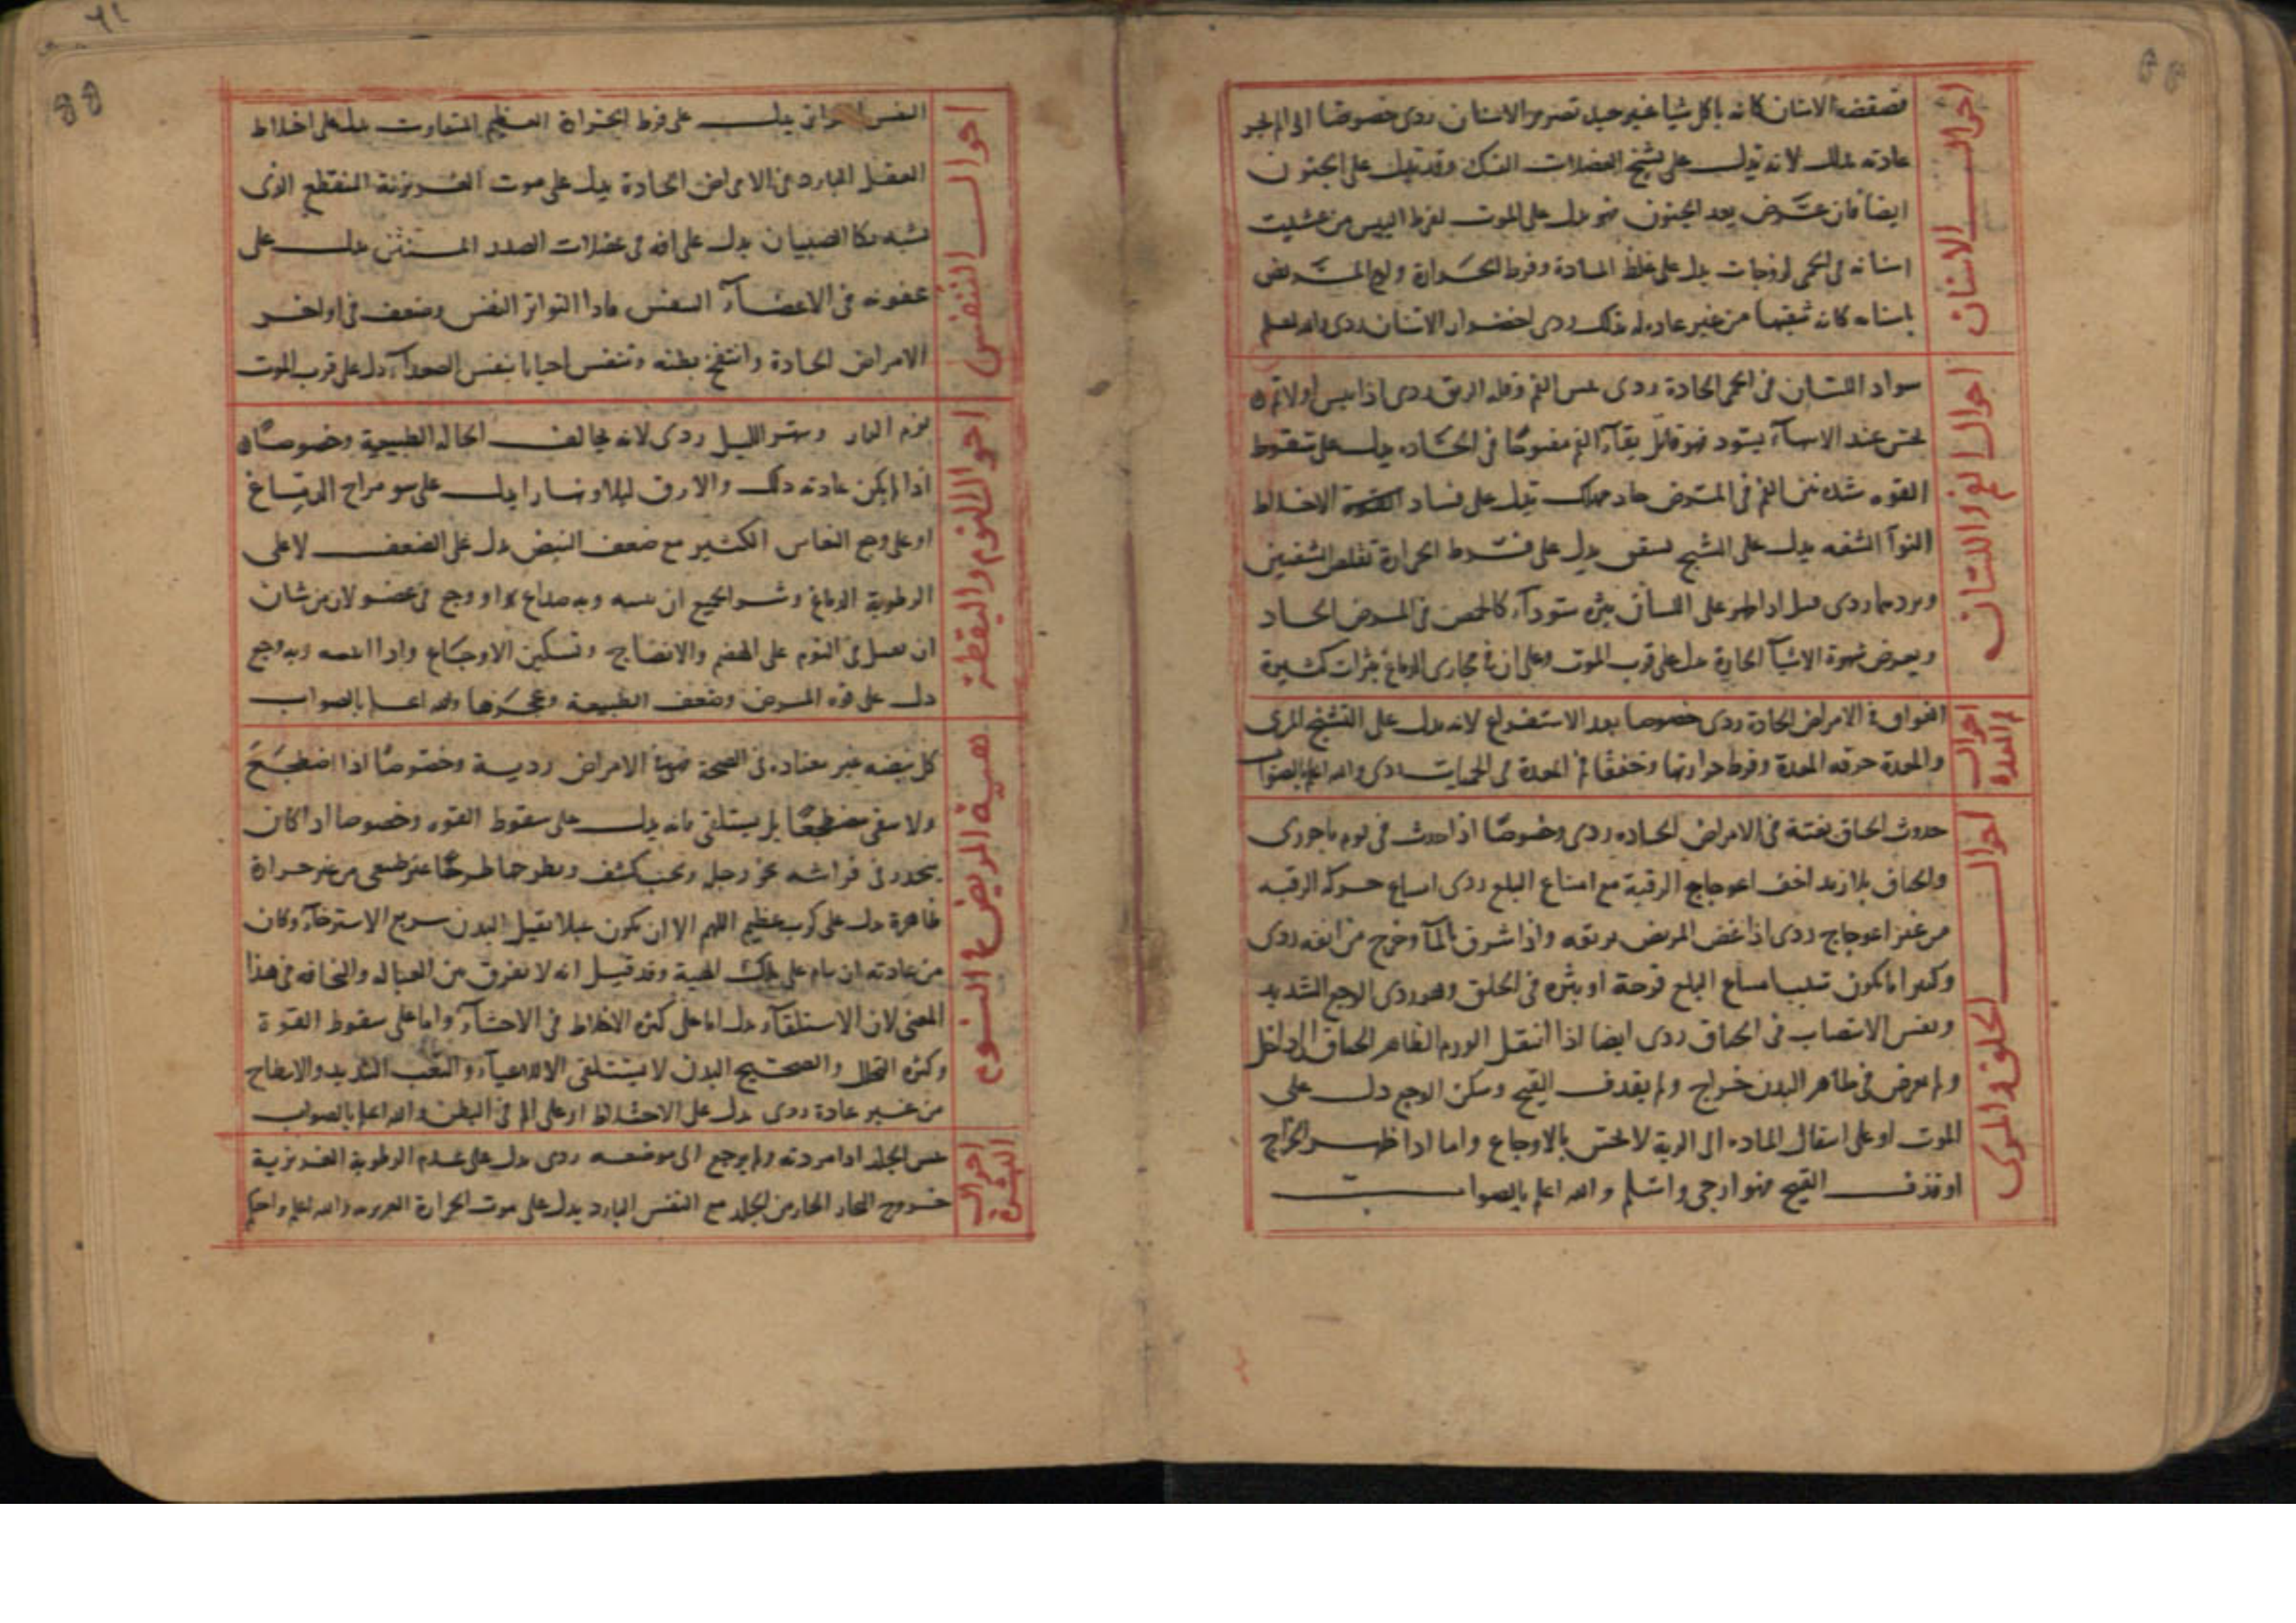 احوال الاسنان
قضقضة الاسنان كانه ياكل شيا غير جيد تضر من الاسنان ردى خصوصا
عادته لانه تدل على تشنج العضلات الفك وقد تدل على الجنون
ايضا فان عرض بعد الجنون فهو يدل على الموت لفرط اليبس من غشيت
اسنانه فى الحمى لزوجات يدل على غلظ المادة وفرط الحرارة ولوع المريض
باسنانه كانه ينقيها من غير عادة له بذلك ردى اخضرار الاسنان ردى والله اعلم
احوال الفم واللسان
سواد اللسان فى الحمى الحادة ردى يبس الفم وقلة الريق ردى اذا يبس اولا ثم
خشن عند الانتهاء يسود فهو قاتل بقاء الفم مفتوحا فى الحادة يدل على سقوط
القوه شدة نتن الفم فى المرض حاد مهلك تدل على فساد الاخلاط
التواء الشفه يدل على التشنج تشقق يدل على فرط الحرارة تقلص الشفتين
وبردهما ردى قيل اذا ظهر على اللسان بثره سوداء كالحمص فى المرض الحاد
ويعرض شهوة الاشياء الحارة دل على قرب الموت وعلى ان فى مجارى الدماغ بثرات كثيرة
احوال فم المعدة
الفواق فى الامراض الحادة ردى خصوصا بعد الاستفراغ لانه يدل على التشنج المرى
والمعدة حرقه المعدة وفرط حرارتها وخفقا فم المعدة فى الحميات ردى والله اعلم بالصواب
احوال الحلق والمرى
حدوث الخناق بغتة فى الامراض الحاده ردى وخصوصا اذا حدث فى يوم باحورى
والخناق بلا زبد اخف اعوجاج الرقبة مع امتناع البلع ردى امتناع حركة الرقبه
من غير اعوجاج ردى اذا غص المريض بريقه واذا شرق بالماء وخرج من انفه ردى
وكثيرا ما يكون سبب امتناع البلع قرحة او بثره فى الحلق وهو ردى الوجع الشديد
ونفس الانتصاب فى الخناق ردى ايضا اذا انتقل الورم الظاهر الخناق الى داخل
ولم يعرض فى ظاهر البدن خراج ولم يقذف القيح وسكن الوجع دل على
الموت او على انتقال الماده الى الرية لا تحس بالاوجاع واما اذا ظهر الخراج
او قذف القيح فهو ارجى واسلم والله اعلم بالصواب
احوال التنفس
النفس يدل على فرط الحرارة العظيم المتفاوت يدل على اختلاط
العقل البارد فى الامراض الحادة يدل على موت الغريزية المنقطع الذى
يشبه بكا الصبيان يدل على افه فى عضلات الصدر المنتن يدل على
عفونه فى الاعضاء التنفس واذا التواتر النفس وضعف فى اواخر
الامراض الحادة وانتفخ بطنه وتنفس احيانا بنفس الصعداء دل على قرب الموت
احوال النوم واليقظة
نوم النهار وسهر الليل ردى لانه يخالف الحاله الطبيعية وخصوصا
اذا لم يكن عادته ذلك والارق ليلا ونهارا يدل على سو مزاج الدماغ
او على وجع النعاس الكثير مع ضعف النبض دل على الضعف لا على
الرطوبة الدماغ وشر الجميع ان ينتبه وبه صداع او وجع فى عضو لان من شان
ان يعمل فى النوم على الهضم والانضاج وتسكين الاوجاع واذا انتبه وبه وجع
دل على قوه المرض وضعف الطبيعة وعجزها والله اعلم بالصواب
هيئة المريض فى النوم
كل نيضه غير معتاده فى الصحة فهى فى الامراض ردية وخصوصا اذا اضطجع
ولا يبقى مضطجعا بل يستلقى فانه يدل على سقوط القوه وخصوصا اذا كان
ينحدر فى فراشه نحو رجل ويحب كشف ويطرحها طرحا غير طبيعى من غير حرارة
ظاهرة دل على كرب عظيم اللهم الا ان يكون عبلا ثقيل البدن سريع الاسترخاء وكان
من عادته ان ينام على تلك الهية وقد قيل انه لا يفرق بين العباله والنحافه فى هذا
المعنى لان الاستلقاء دل اما على كثرة الاخلاط فى الاحشاء واما على سقوط القوة
وكثرة التحلل والصحيح البدن لا يستلقى الا للاعياء والتعب الشديد والانبطاح
من غير عادة ردى يدل على الاختلاط او على الم فى البطن والله اعلم بالصواب
احوال البشرة
يبس الجلد اذا مردته ولم يرجع الى موضعه ردى يدل على عدم الرطوبة الغريزية
خروج البخار الحار من الجلد مع النفس البارد يدل على موت الحرارة الغريزيه والله اعلم واحكم